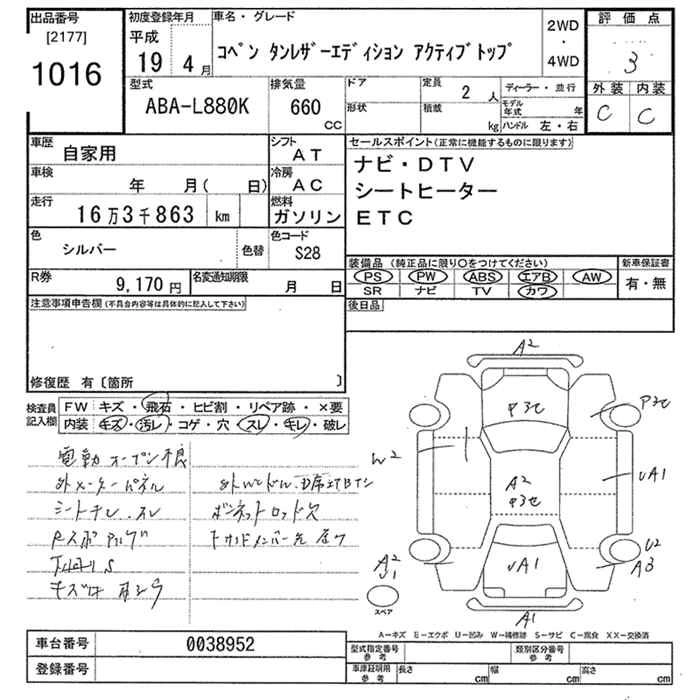 出品番号
[2177]
1016
初度登録年月
平成
19 4月
車名・グレード
コペン タンレザーエディション アクティブトップ
2WD
・
4WD
評価点
3
外装 内装
C C
型式
ABA-L880K
排気量
660
CC
ドア
形状
定員
2 人
積載
kg
ディーラー・並行
モデル年式 年
ハンドル 左・右
車歴
自家用
シフト
AT
車検
年 月( 日)
冷房
AC
走行
16万3千863 km
燃料
ガソリン
色
シルバー
色替
色コード
S28
R券
9,170 円
名変通知期限
月 日
セールスポイント(正常に機能するものに限ります)
ナビ・DTV
シートヒーター
ETC
装備品 (純正品に限り○をつけてください)
PS PW ABS エアB AW
SR ナビ TV カワ
新車保証書
有・無
後日品
注意事項申告欄(不具合内容等は具体的に記入して下さい)
修復歴 有〔箇所 〕
検査員記入欄
FW キズ・飛石・ヒビ割・リペア跡・×要
内装 キズ・汚レ・コゲ・穴・スレ・キレ・破レ
電動オープン不良
外メーターパネル
シートキレ.スレ
A2
P3セ
P3セ
W2
A2
P3セ
UA1
UA1
U2
A3
A2
A1
スペア
A－キズ E－エクボ U－凹み W－補修跡 S－サビ C－腐食 XX－交換済
車台番号
0038952
登録番号
型式指定番号
参考
類別区分番号
参考
車庫証明用
参考
長さ cm
幅 cm
高さ cm